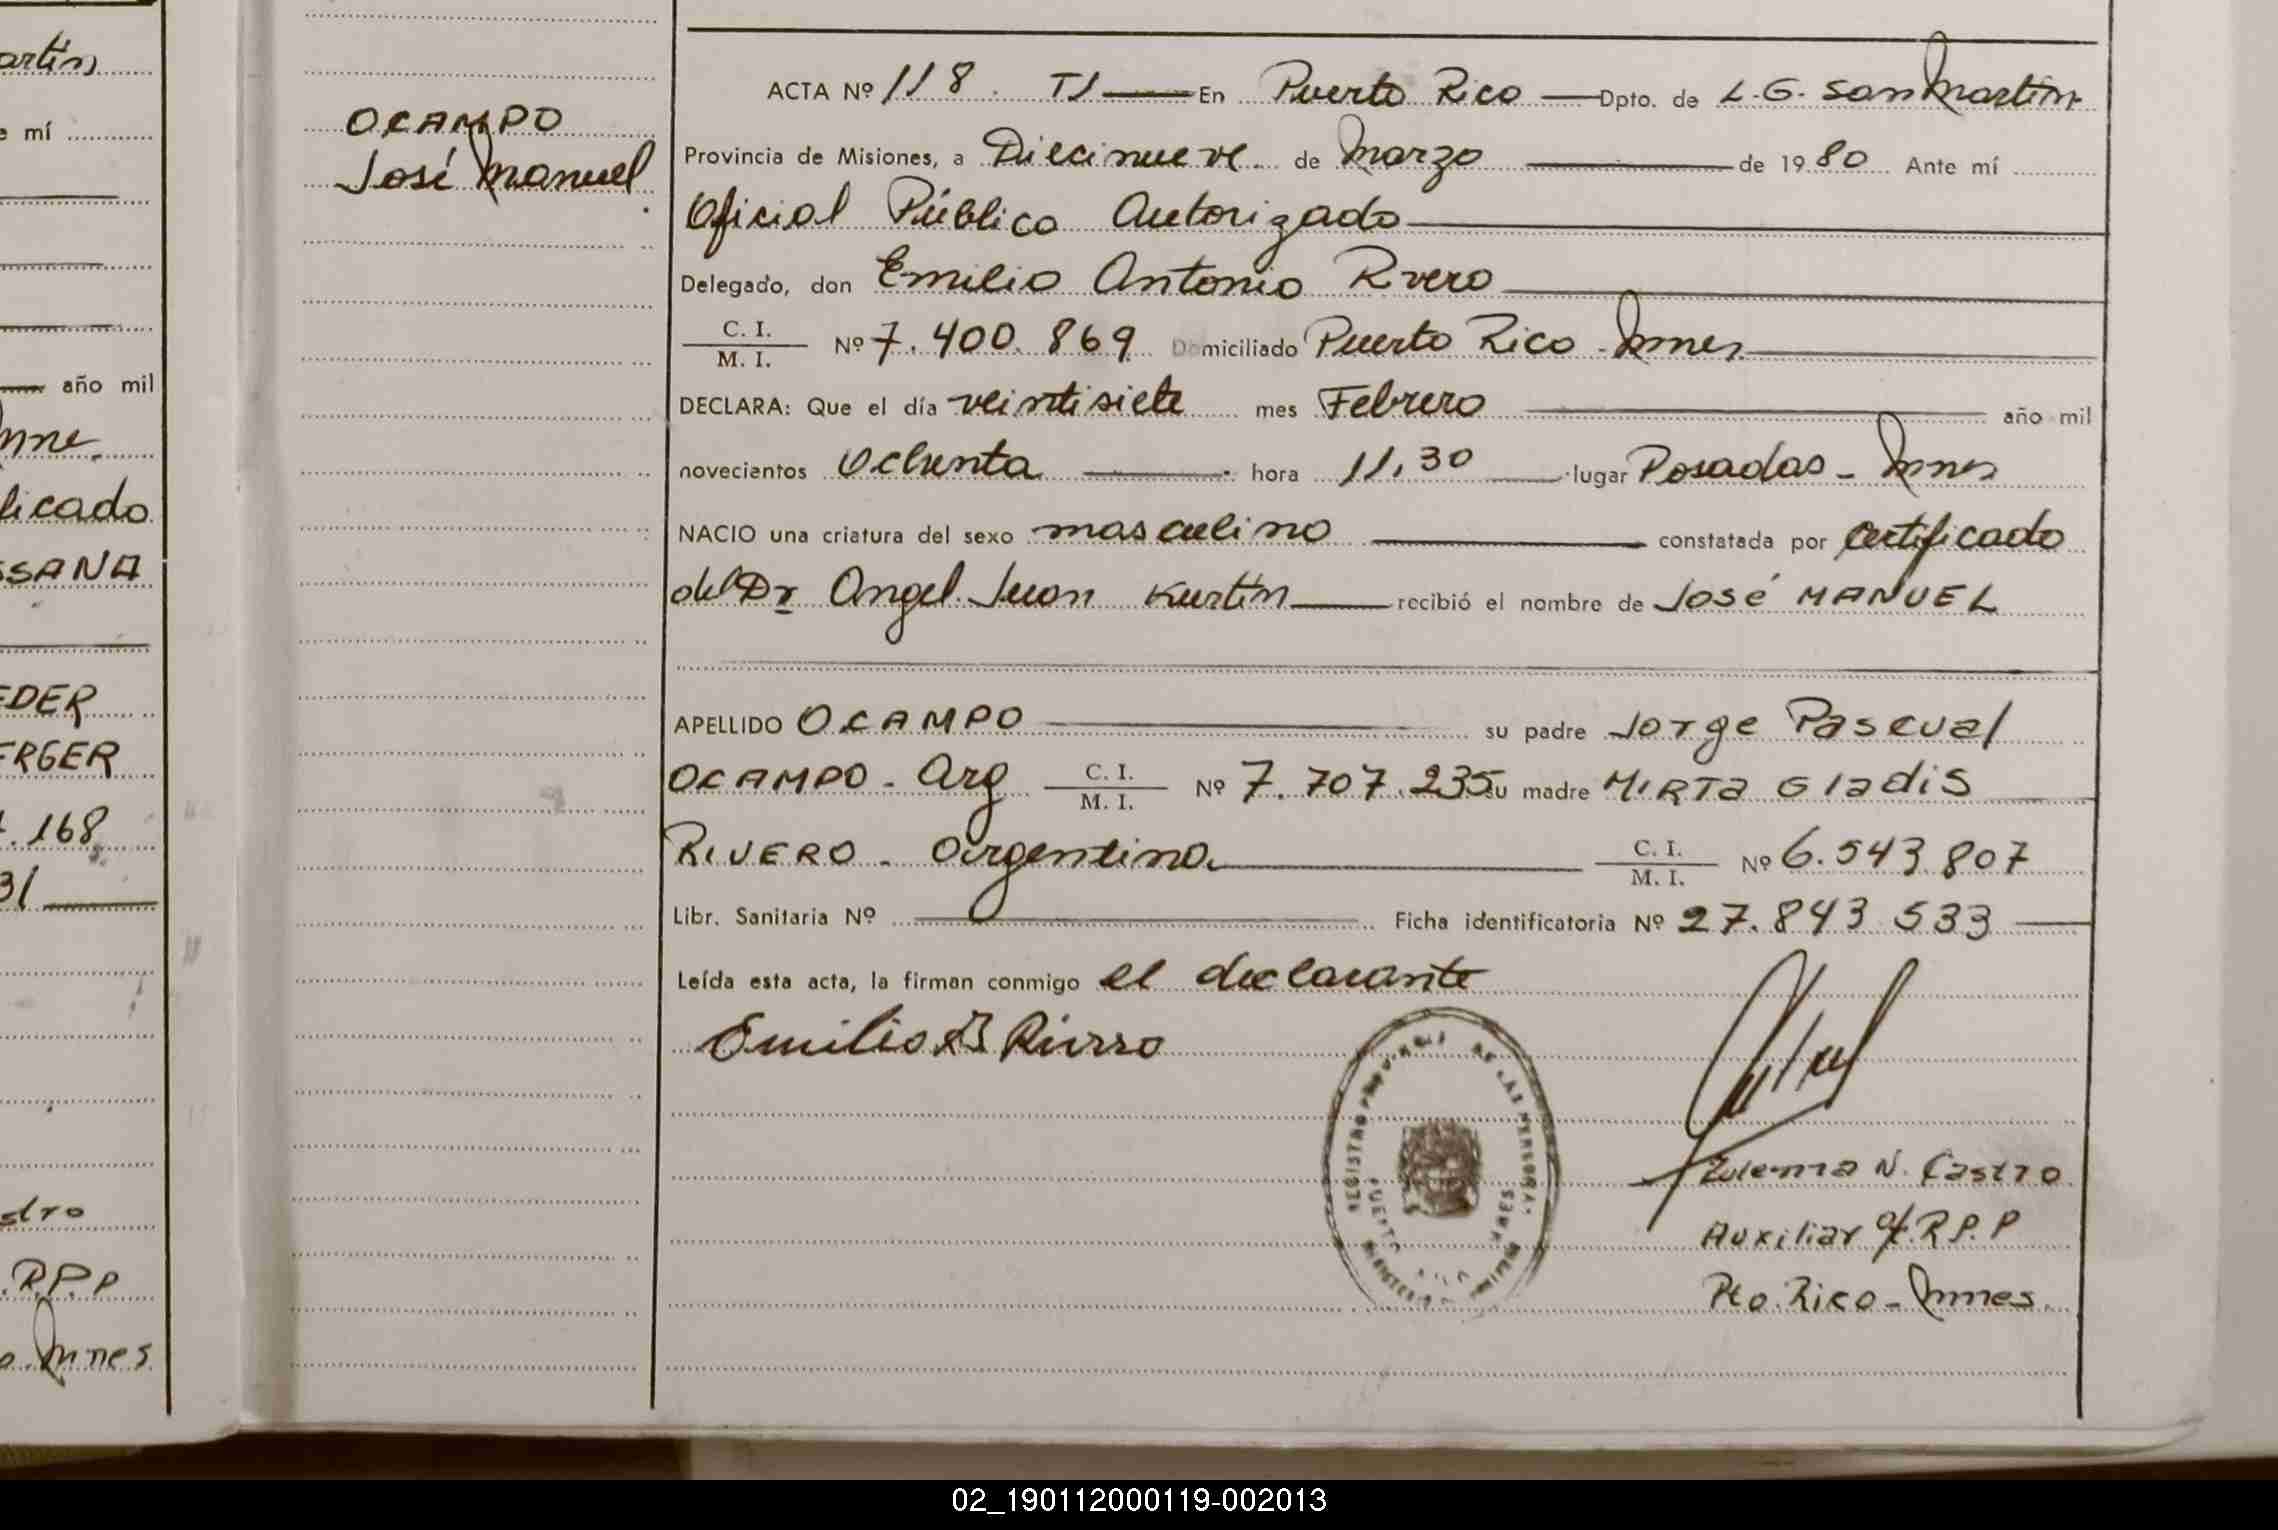 artín
e mí
año mil
nne.
licado
SSANA
EDER
ERGER
.168
31
stro
.R.P.P
o. Mnes
OCAMPO
José Manuel
ACTA Nº 118 T1 En Puerto Rico Dpto. de L.G. San Martín
Provincia de Misiones, a Diecinueve de Marzo de 1980 Ante mí
Oficial Público Autorizado
Delegado, don Emilio Antonio Rvero
C. I.
M. I. Nº 7.400.869 Domiciliado Puerto Rico - Mnes
DECLARA: Que el día veintisiete mes Febrero año mil
novecientos Ochenta hora 11,30 lugar Posadas - Mnes
NACIO una criatura del sexo masculino constatada por certificado
del Dr Angel Juan Kurtin recibió el nombre de José MANUEL
APELLIDO OCAMPO su padre Jorge Pascual
OCAMPO - Arg C. I.
M. I. Nº 7.707.235 su madre MIRTA Gladis
RIVERO - Argentina C. I.
M. I. Nº 6.543.807
Libr. Sanitaria Nº Ficha identificatoria Nº 27.843.533
Leída esta acta, la firman conmigo el declarante
Emilio Rivero
REGISTRO PROVINCIAL DE LAS PERSONAS
PUERTO RICO MNES
Zulema N. Castro
Auxiliar of. R.P.P
Pto. Rico - Mnes.
02_190112000119-002013